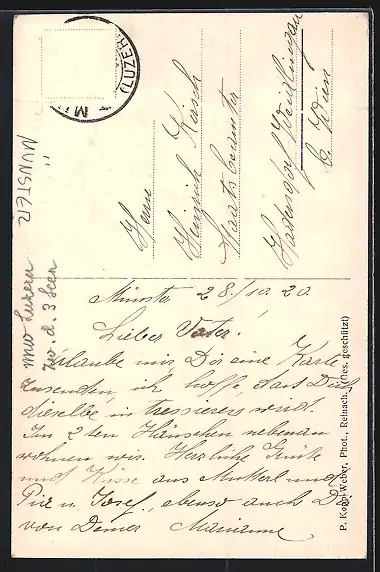 (LUZER
M
MÜNSTER
nnw Luzern
zw. d. 3 Seen
Herrn
Heinrich Reisch
Staatsbeamter
Hadersdorf Weidlingau
b. Wien
Münster 28./10. 20.
Lieber Vater!
Erlaube mir Dir eine Karte
zusenden, ich hoffe dast Dich
dieselbe intressieren wird.
Im 2ten Häuschen nebenan
wohnen wir. Herzliche Grüße
und Küsse aus Mutterl und
u. Josef, ebenso auch Du
von Deiner Marianne
P. Kopp-Weber, Phot., Reinach. (Ges. geschützt)